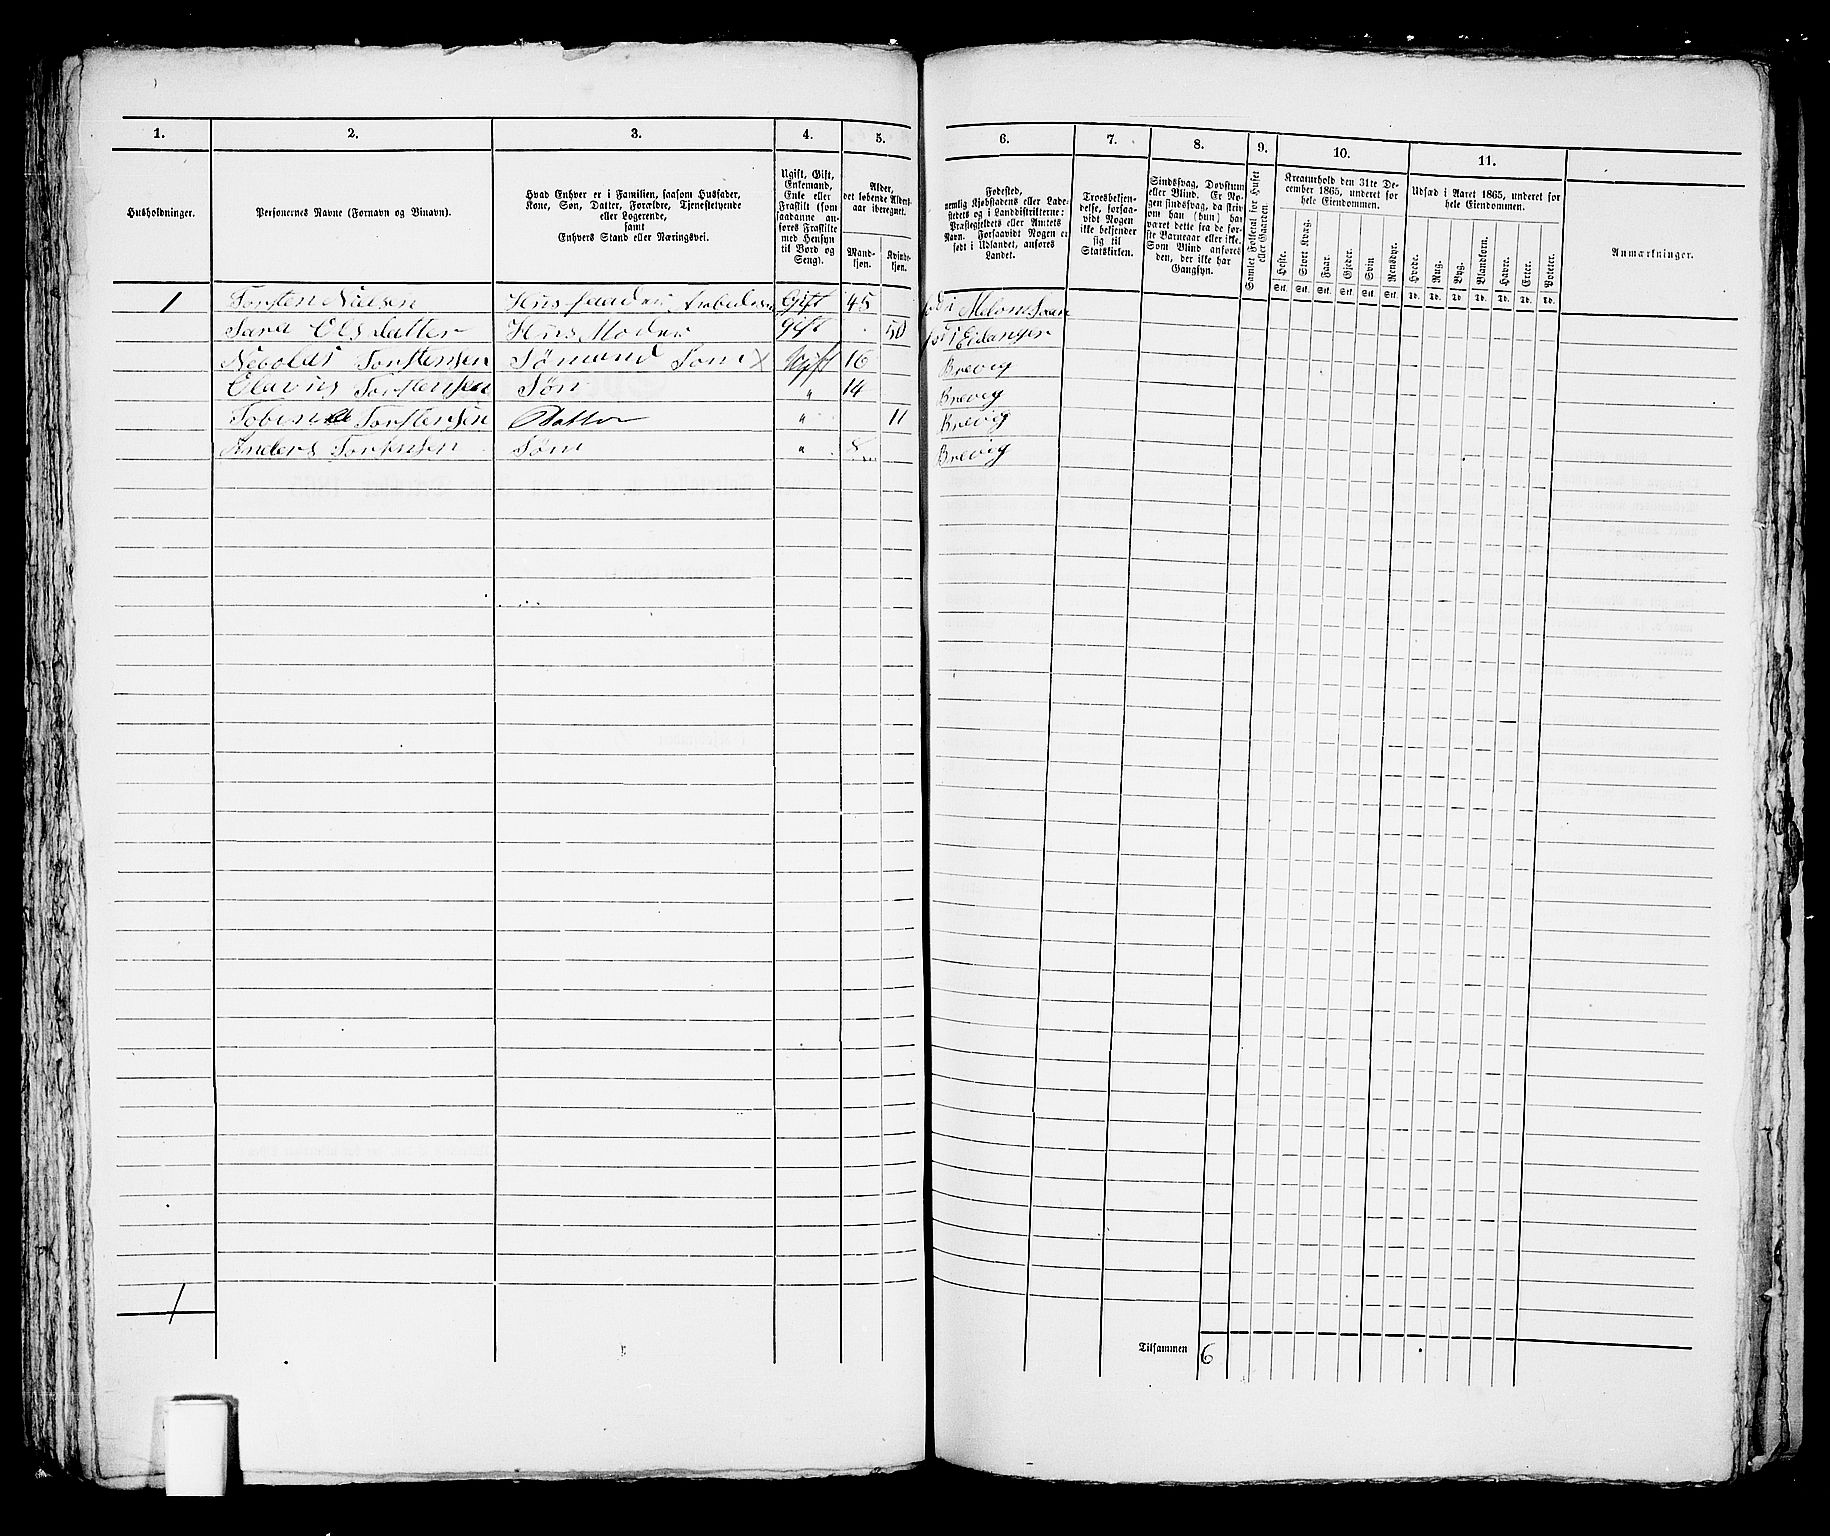 1. 2. 3. 4. 5.
Husholdninger.
Personernes Navne (Fornavn og Binavn).
Hvad Enhver er i Familien, saasom Husfader,
Kone, Søn, Datter, Forældre, Tjenestetyende
eller Logerende,
samt
Enhvers Stand eller Næringsvei.
Ugift, Gift,
Enkemand,
Enke eller
Fraskilt (som
saadanne an-
føres Fraskilte
med Hensyn
til Bord og
Seng).
Alder,
det løbende Alders-
aar iberegnet.
Mand-
kjøn.
Kvinde-
kjøn.
1 Torsten Nielsen Husfaader Arbeder Gift 45
Sara Olsdatter Hus Moder gift 50
Nicolai Torstensen Sømand Søn x Ugift 16
Olavus Torstensen Søn " 14
Torstensen Datter " 11
Anders Torstensen Søn " 8
1
6. 7. 8. 9. 10. 11.
Fødested,
nemlig Kjøbstadens eller Lade-
stedets og i Landdistrikterne:
Præstegjeldets eller Amtets
Navn. Forsaavidt Nogen er
født i Udlandet, anføres
Landet.
Troesbekjen-
delse, forsaa-
vidt Nogen
ikke bekjender
sig til
Statskirken.
Sindssvag, Døvstum
eller Blind. Er No-
gen sindssvag, da skriv
om han (hun) har
været dette fra de før-
ste Barneaar eller ikke.
Som Blind anføres
den, der ikke har
Gangsyn.
Samlet Folketal for Huset
eller Gaarden.
Kreaturhold den 31te De-
cember 1865, underet for
hele Eiendommen.
Heste. Stort Kvæg. Faar. Gjeder. Svin Rensdyr.
Stk. Stk. Stk. Stk. Stk. Stk.
Udsæd i Aaret 1865, underet for
hele Eiendommen.
Hvede. Rug. Byg. Blandkorn. Havre. Erter. Poteter.
Td. Td. Td Td. Td. Td. Td.
Anmærkninger.
i Eidanger
Brevig
Brevig
Brevig
Brevig
Tilsammen 6